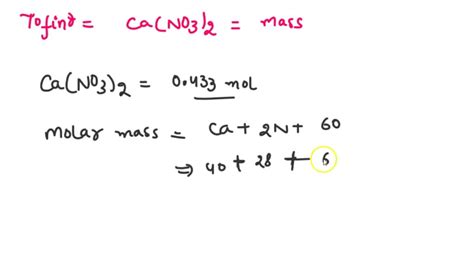 To find = Ca(NO3)2 = mass
Ca(NO3)2 = 0.433 mol
molar mass = Ca + 2N + 6O
⇒ 40 + 28 + 6